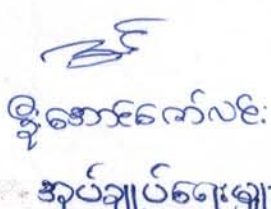 ဦးအောင်ဇော်လင်း
အုပ်ချုပ်ရေးမှူး